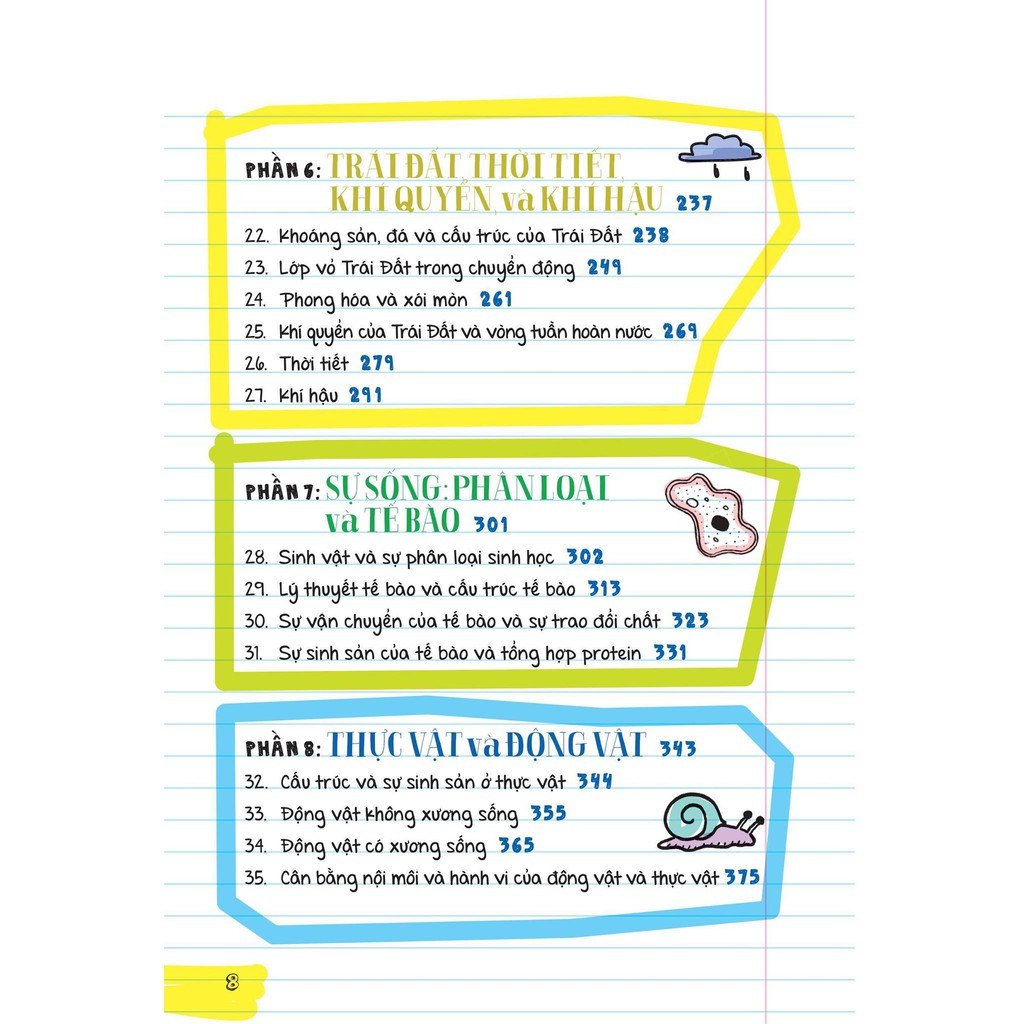 PHẦN 6: TRÁI ĐẤT, THỜI TIẾT,
KHÍ QUYỂN, và KHÍ HẬU 237
22. Khoáng sản, đá và cấu trúc của Trái Đất 238
23. Lớp vỏ Trái Đất trong chuyển động 249
24. Phong hóa và xói mòn 261
25. Khí quyển của Trái Đất và vòng tuần hoàn nước 269
26. Thời tiết 279
27. Khí hậu 291
PHẦN 7: SỰ SỐNG: PHÂN LOẠI
và TẾ BÀO 301
28. Sinh vật và sự phân loại sinh học 302
29. Lý thuyết tế bào và cấu trúc tế bào 313
30. Sự vận chuyển của tế bào và sự trao đổi chất 323
31. Sự sinh sản của tế bào và tổng hợp protein 331
PHẦN 8: THỰC VẬT và ĐỘNG VẬT 343
32. Cấu trúc và sự sinh sản ở thực vật 344
33. Động vật không xương sống 355
34. Động vật có xương sống 365
35. Cân bằng nội môi và hành vi của động vật và thực vật 375
8